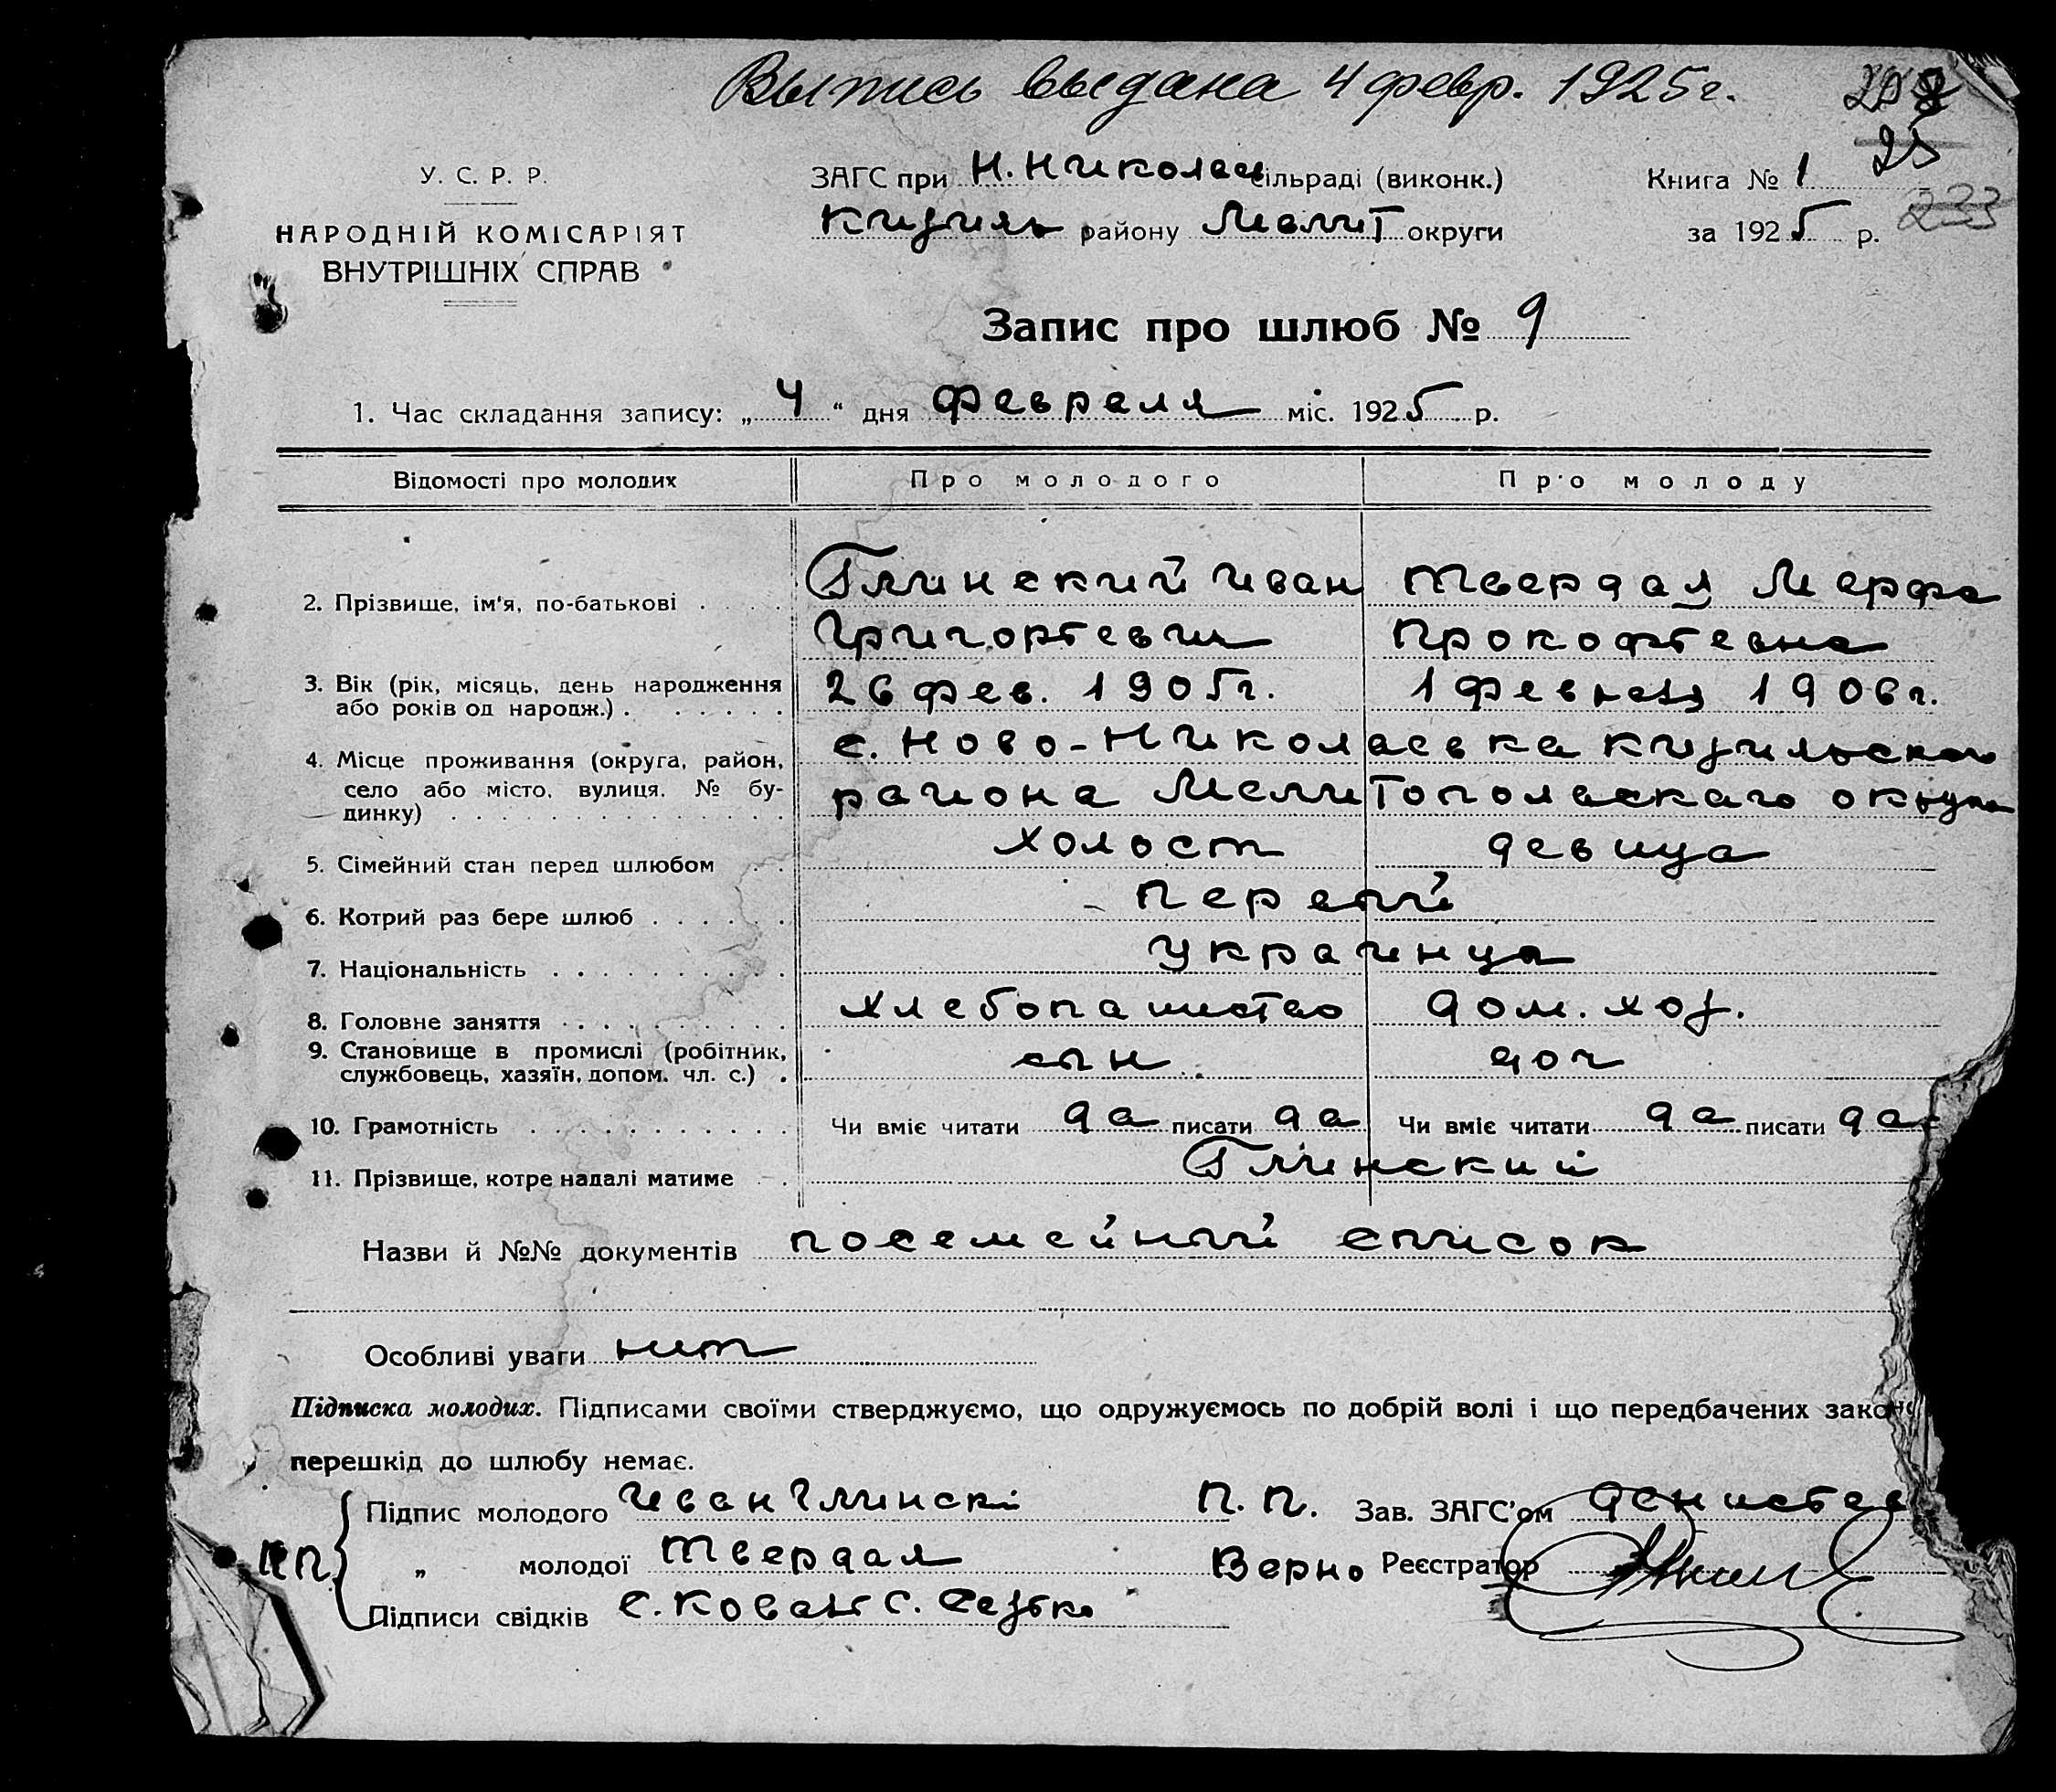 Выпись выдана 4 февр. 1925 г.
25
У. С. Р. Р.
НАРОДНІЙ КОМІСАРІЯТ
ВНУТРІШНІХ СПРАВ
ЗАГС при Н. Николаев сільраді (виконк.)
Кизиль району Мелит округи
Книга № 1
за 1925 р.
233
Запис про шлюб № 9
1. Час складання запису: „ 4 “ дня Февраля міс. 1925 р.
Відомості про молодих Про молодого Про молоду
2. Прізвище, ім'я, по-батькові Глинский Иван Твердая Марфа
Григорьевич Прокофьевна
3. Вік (рік, місяць, день народження або років од народж.) 26 фев. 1905 г. 1 февраля 1906 г.
4. Місце проживання (округа, район, с. Ново-Николаевка Кизильского
село або місто, вулиця, № будинку) района Мелитопольскаго округа
5. Сімейний стан перед шлюбом холост девица
6. Котрий раз бере шлюб первый
7. Національність украинцы
8. Головне заняття хлебопашество дом. хоз.
9. Становище в промислі (робітник, службовець, хазяїн, допом. чл. с.) сын доч
10. Грамотність Чи вміє читати да писати да Чи вміє читати да писати да
11. Прізвище, котре надалі матиме Глинский
Назви й №№ документів посемейный список
Особливі уваги нет
Підписка молодих. Підписами своїми стверджуємо, що одружуємось по добрій волі і що передбачених
перешкід до шлюбу немає.
Підпис молодого Иван Глинскі П. П. Зав. ЗАГС'ом
п.п. „ молодої Твердая Верно Реєстратор
Підписи свідків С. Коваль С.